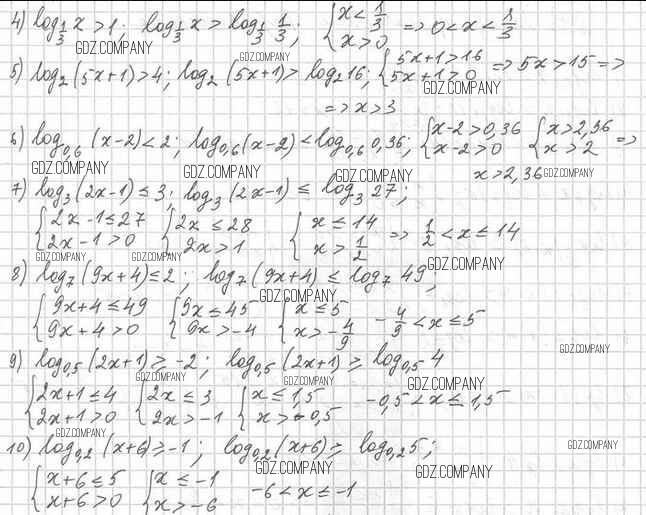 4) log_{1/3} x > 1; log_{1/3} x > log_{1/3} 1/3; { x < 1/3 x > 0 => 0 < x < 1/3
GDZ.COMPANY GDZ.COMPANY
5) log_2 (5x+1) > 4; log_2 (5x+1) > log_2 16; { 5x+1 > 16 5x+1 > 0 => 5x > 15 =>
GDZ.COMPANY
=> x > 3
6) log_{0,6} (x-2) < 2; log_{0,6} (x-2) < log_{0,6} 0,36; { x-2 > 0,36 x-2 > 0 { x > 2,36 x > 2 =>
GDZ.COMPANY GDZ.COMPANY GDZ.COMPANY x > 2,36 GDZ.COMPANY
7) log_3 (2x-1) ≤ 3; log_3 (2x-1) ≤ log_3 27;
{ 2x-1 ≤ 27 2x-1 > 0 { 2x ≤ 28 2x > 1 { x ≤ 14 x > 1/2 => 1/2 < x ≤ 14
GDZ.COMPANY GDZ.COMPANY GDZ.COMPANY
8) log_7 (9x+4) ≤ 2; log_7 (9x+4) ≤ log_7 49;
GDZ.COMPANY
{ 9x+4 ≤ 49 9x+4 > 0 { 9x ≤ 45 9x > -4 { x ≤ 5 x > -4/9 -4/9 < x ≤ 5
GDZ.COMPANY
9) log_{0,5} (2x+1) ≥ -2; log_{0,5} (2x+1) ≥ log_{0,5} 4
GDZ.COMPANY GDZ.COMPANY GDZ.COMPANY
{ 2x+1 ≤ 4 2x+1 > 0 { 2x ≤ 3 2x > -1 { x ≤ 1,5 x > -0,5 -0,5 < x ≤ 1,5
GDZ.COMPANY
10) log_{0,2} (x+6) ≥ -1; log_{0,2} (x+6) ≥ log_{0,2} 5;
GDZ.COMPANY GDZ.COMPANY GDZ.COMPANY
{ x+6 ≤ 5 x+6 > 0 { x ≤ -1 x > -6 -6 < x ≤ -1